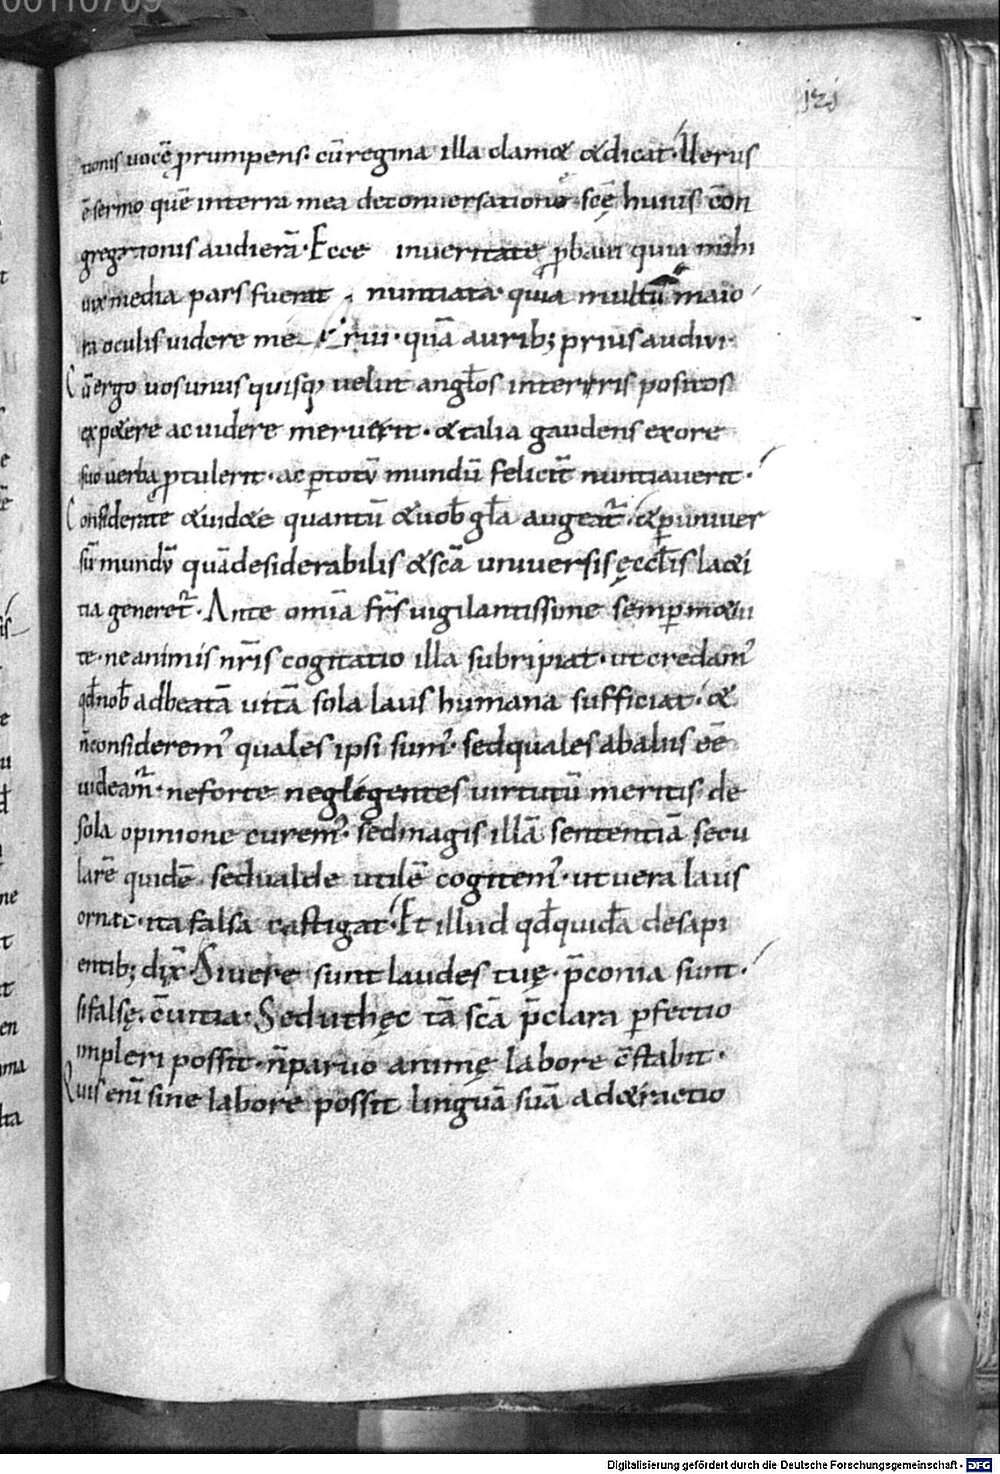 00110709
121
tionis uocē prumpens· cū regina illa clam& & dicat· Verus
ē sermo quē in terra mea de conuersatione scę huius con
gregationis audierā· Ecce in ueritate ꝓbaui quia mihi
uix media pars fuerat nuntiata· quia multū maio
ra oculis uidere me rui· quā aurib; prius audiui·
Cū ergo uos unus quisq; uelut angl̄os in terris positos
exp&ere ac uidere meruerit· & talia gaudens ex ore
suo uerba ꝓtulerit· ac p totū mundū felicit̄ nuntiauerit·
Considerate & uid&e quantū & uob̄ gl̄a augeat̄· & p uniuer
sū mundū quā desiderabilis & scā uniuersis ęccl̄is l&
tia generet̄· Ante omīa fr̄s uigilantissime semper m&u
te· ne animis nr̄is cogitatio illa subripiat· ut credam᾿
qd̄ nob̄ ad beatā uitā sola laus humana sufficiat· &
n̄ considerem᾿ quales ipsi sum᾿· sed quales ab aliis eē
uideam̄· ne forte neglegentes uirtutū meritis· de
sola opinione curem᾿· sed magis illā sententiā secu
larē quidē· sed ualde utilē cogitem᾿· ut uera laus
ornat· ita falsa castigat· Et illud qd̄ quidā de sapi
entib; dix̄· Si uere sunt laudes tuę· p̄conia sunt·
si falsę· c̄uitia· Sed ut hęc tā scā p̄clara pfectio
impleri possit· n̄ paruo animę labore c̄stabit·
Quis enī sine labore possit linguā suā a d&ractio
Digitalisierung gefördert durch die Deutsche Forschungsgemeinschaft - DFG